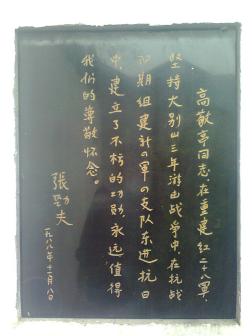 高敬亭同志在重建红二十八军,
坚持大别山三年游击战争中在抗战
初期组建新四军四支队东进抗日
中,建立了不朽的功勋,永远值得
我们的尊敬怀念。
張劲夫
一九八八年十一月八日